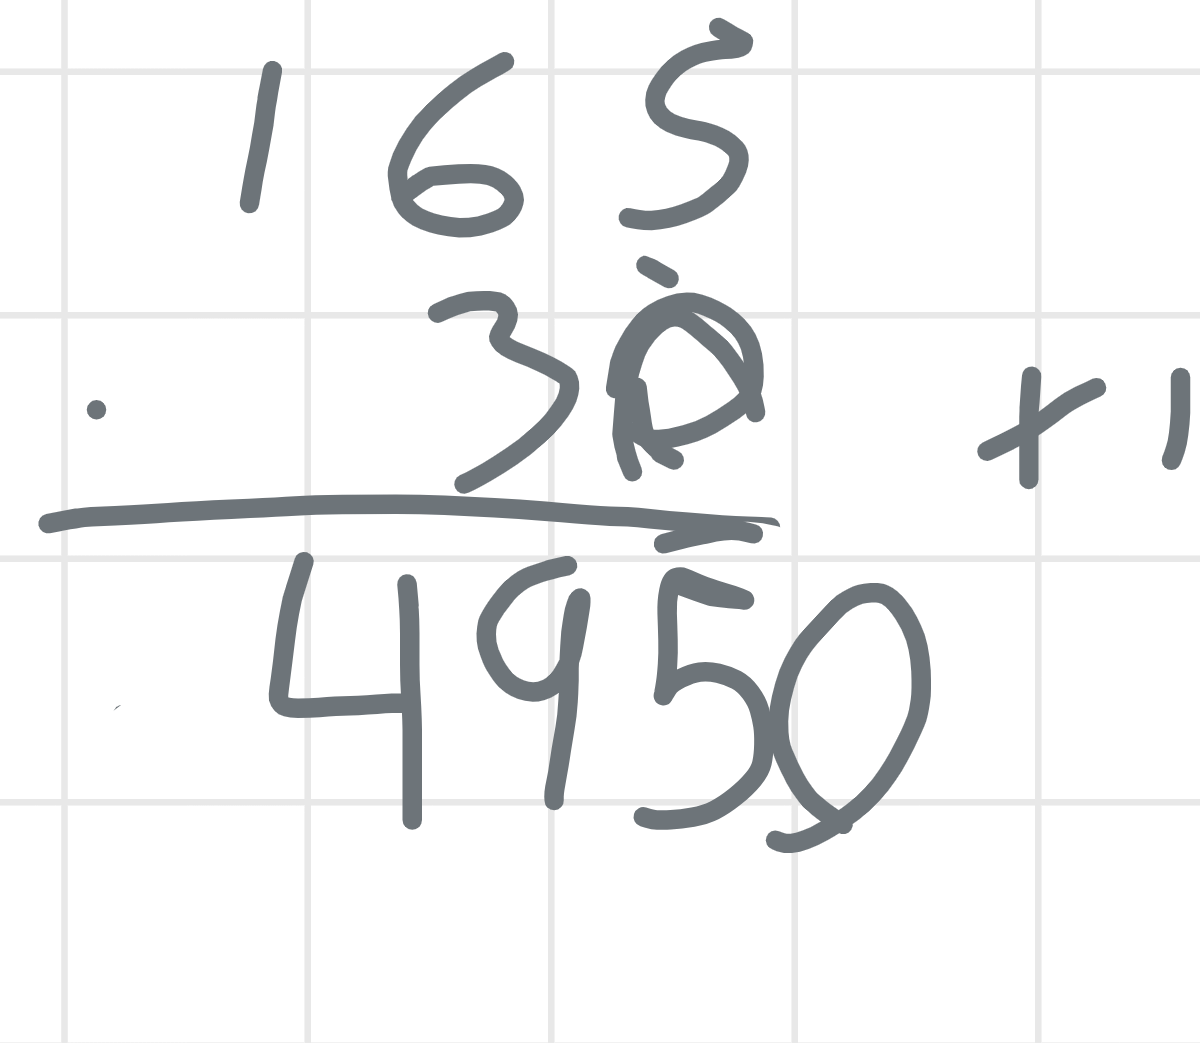 165
· 30 +1
4950